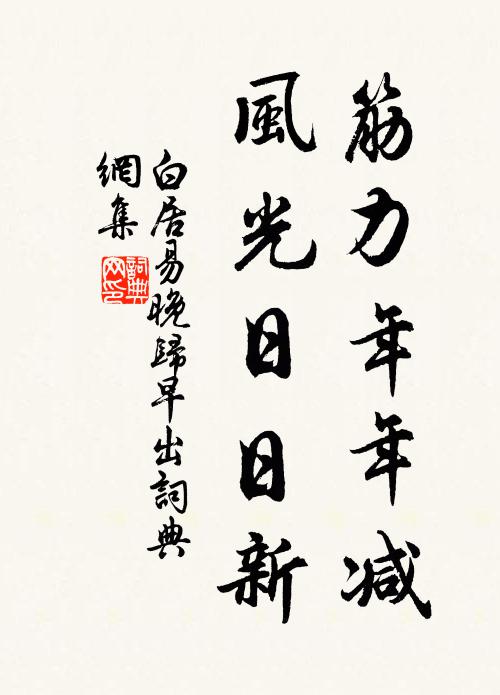 筋力年年減
風光日日新
白居易晚歸早出詞典
網集
詞典
网印